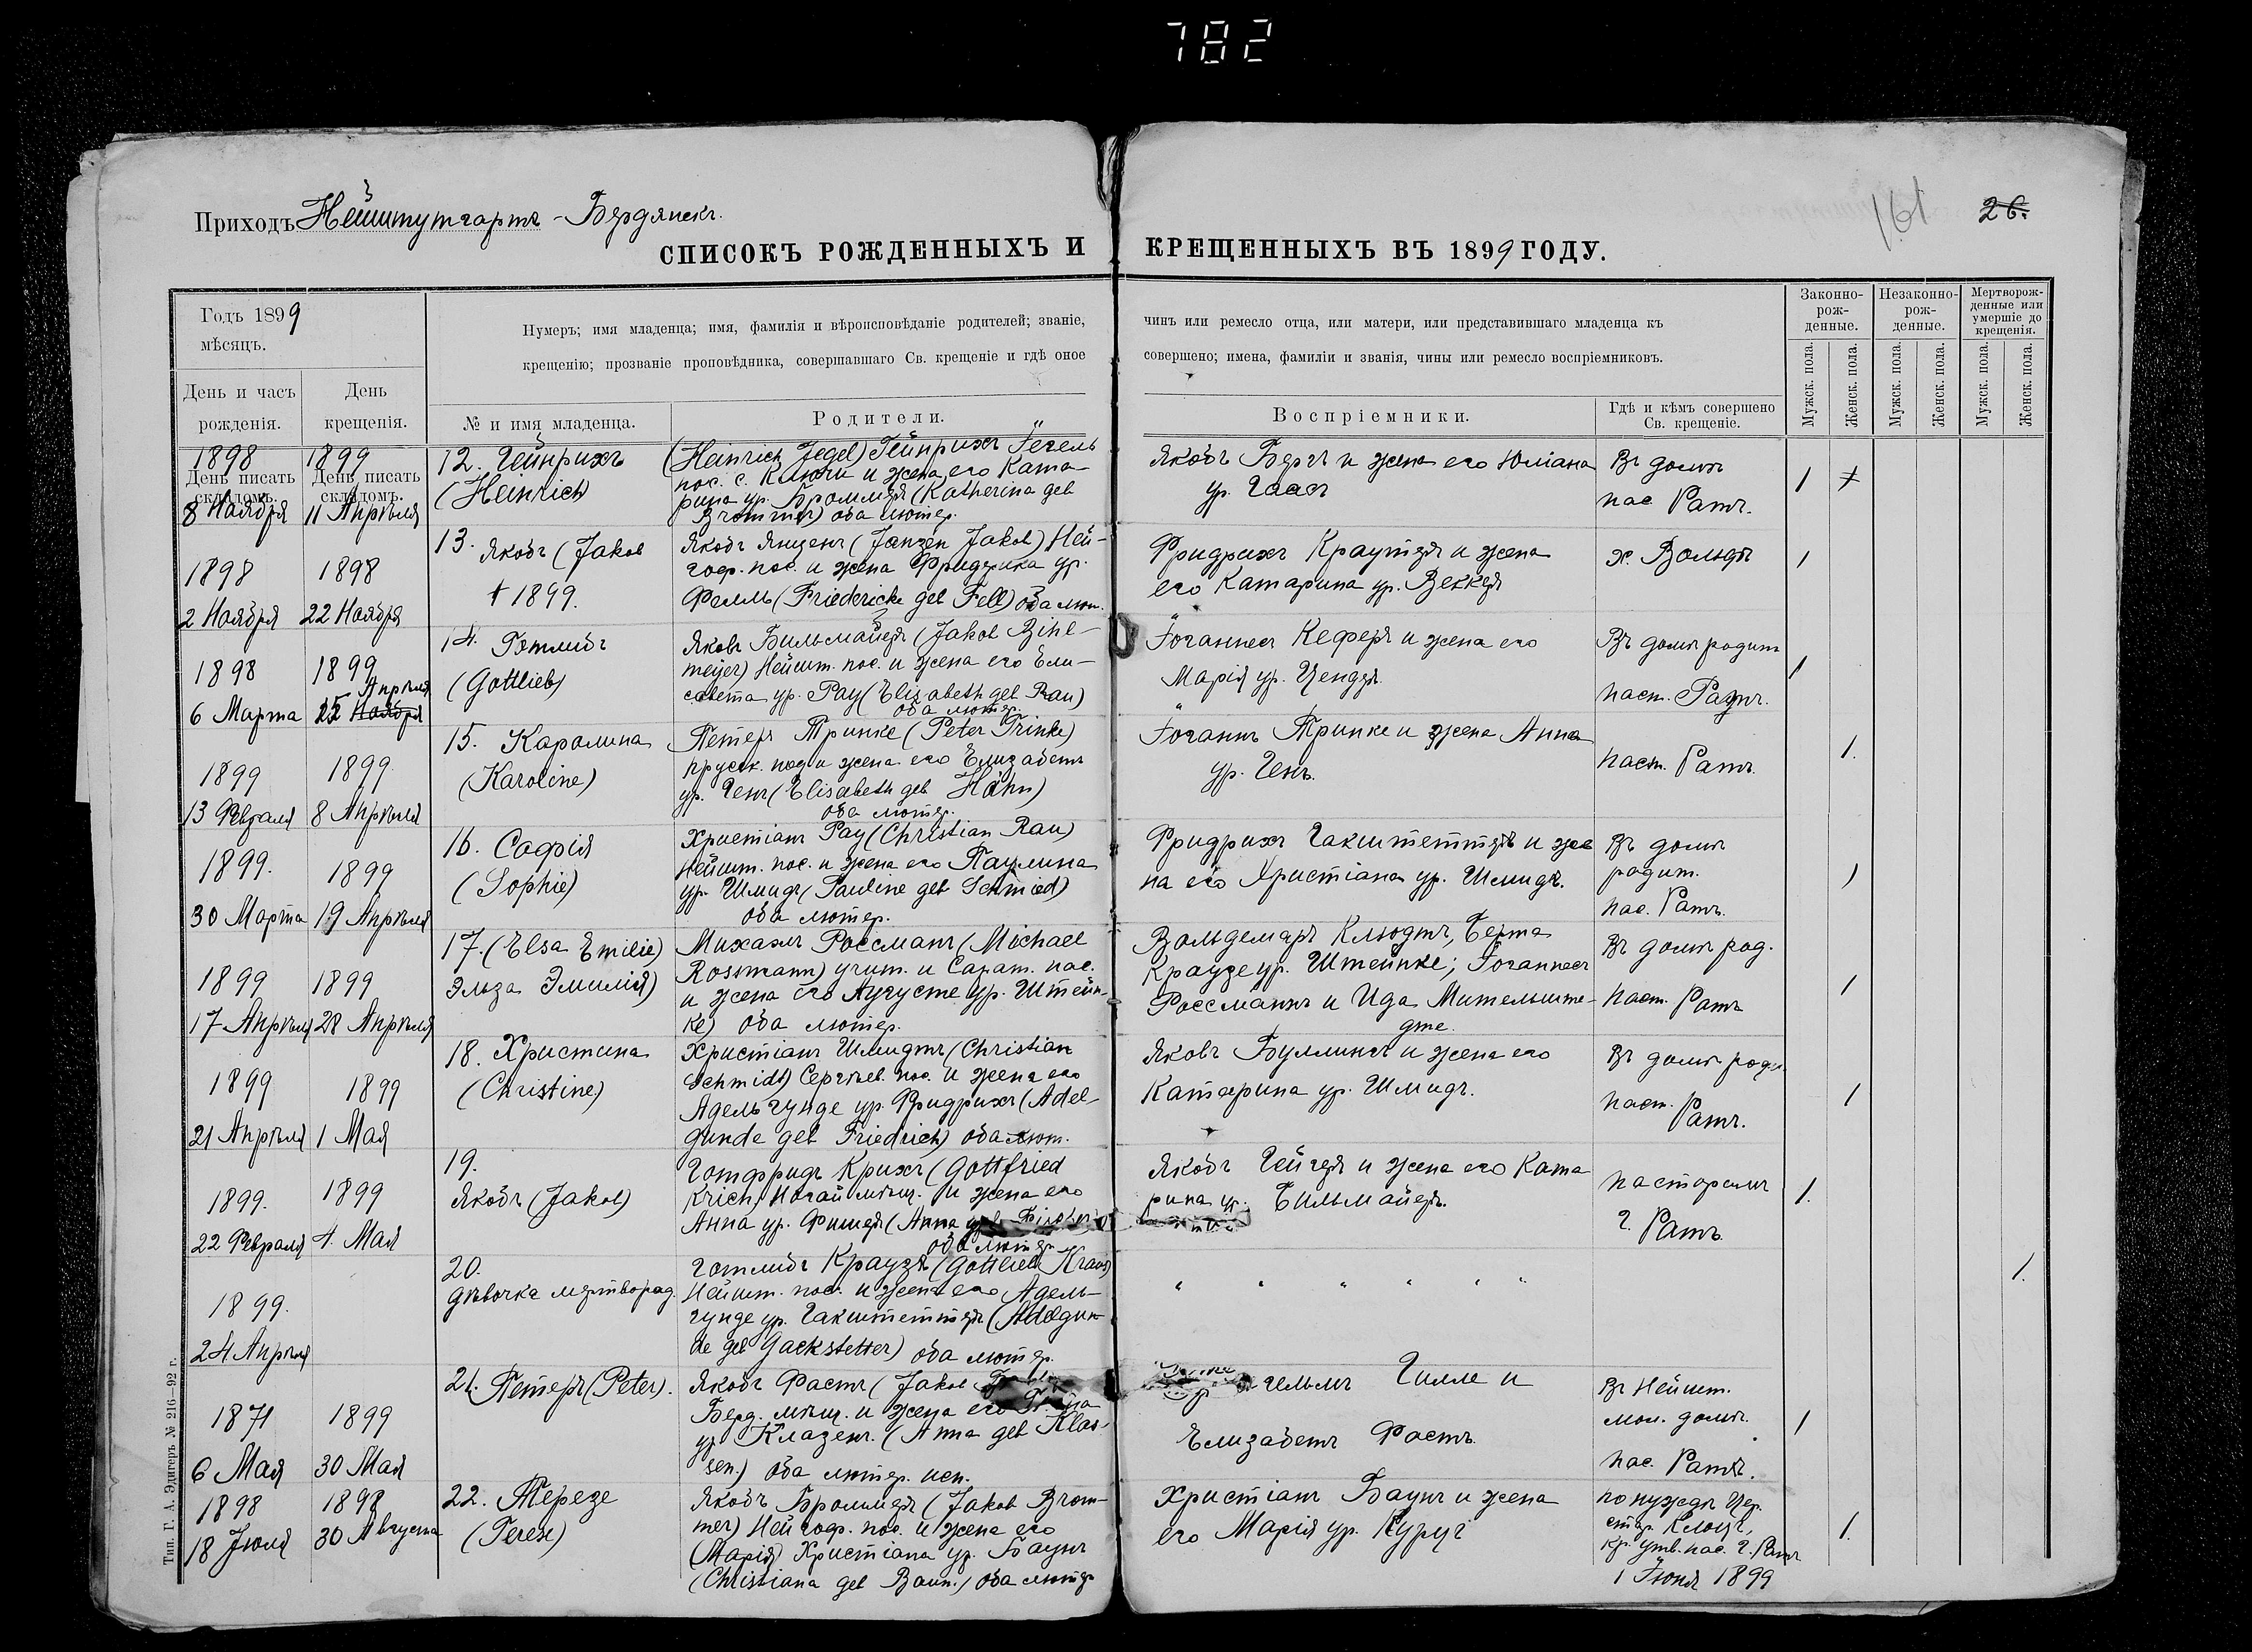 782
Приходъ Нейштутгартъ - Бердянскъ.
161
26.
СПИСОКЪ РОЖДЕННЫХЪ И КРЕЩЕННЫХЪ ВЪ 1899 ГОДУ.
Годъ 1899
мѣсяцъ.
День и часъ
рожденія.
День
крещенія.
Нумеръ; имя младенца; имя, фамилія и вѣроисповѣданіе родителей; званіе, чинъ или ремесло отца, или матери, или представившаго младенца къ
крещенію; прозваніе проповѣдника, совершавшаго Св. крещеніе и гдѣ оное совершено; имена, фамиліи и званія, чины или ремесло воспріемниковъ.
№ и имя младенца.
Родители.
Воспріемники.
Гдѣ и кѣмъ совершено
Св. крещеніе.
Законно-
рож-
денные.
Незаконно-
рож-
денные.
Мертворож-
денные или
умершіе до
крещенія.
Мужск. пола.
Женск. пола.
Мужск. пола.
Женск. пола.
Мужск. пола.
Женск. пола.
День писать
складомъ.
День писать
складомъ.
1898
8 Ноября
1899
11 Апрѣля
12. Гейнрихъ
(Heinrich)
(Heinrich Jegel) Гейнрихъ Іегель
пос. с. и жена его Ката-
рина ур. Броммеръ (Katherina geb
Brommer) оба лютер.
Якобъ Бергъ и жена его Юліана
ур. Гаасъ
Въ домѣ
пас Ратъ.
1
1898
2 Ноября
1898
22 Ноября
13. Якобъ (Jakob
† 1899.
Якобъ Янценъ (Janzen Jakob) Ней-
гоф. пос. и жена Фридрика ур.
Фелль (Friedericke geb Fell) оба лют.
Фридрихъ Краутеръ и жена
его Катарина ур. Веккеръ
х. Вольфъ
1
1898
6 Марта
1899
Апрѣля
25 Ноября
14. Готлибъ
(Gottlieb)
Яковъ Бильмайеръ (Jakob Bihl-
meijer) Нейшт. пос. и жена его Ели-
савета ур. Рау (Elisabeth geb Rau)
оба лютер.
Іоганнесъ Кеферъ и жена его
Марія ур. Цендеръ.
Въ домѣ родит
паст. Ратъ.
1
1899
13 Февраля
1899.
8 Апрѣля
15. Каролина
(Karoline)
Петеръ Тринке (Peter Trinke)
прусск. под и жена его Елизабетъ
ур. Генъ (Elisabeth geb Hähn)
оба лютер.
Іоганнъ Тринке и жена Анна
ур. Генъ.
паст. Ратъ.
1.
1899.
30 Марта
1899
19 Апрѣля
16. Софія
(Sophie)
Христіанъ Рау (Christian Rau)
Нейшт. пос. и жена его Паулина
ур. Шмидъ (Pauline geb Schmied)
оба лютер.
Фридрихъ Гакштеттеръ и же
на его Христіана ур. Шмидъ.
Въ домѣ
родит.
пас. Ратъ.
1
1899
17 Апрѣля
1899
28 Апрѣля
17. (Elsa Emilie)
Эльза Эмилія)
Михаэлъ Россманъ (Michael
Rossmann) учит. и Сарат. пос.
и жена его Аугусте ур. Штейн-
ке) оба лютер.
Вольдемаръ Клюдтъ, Берта
Краузе ур. Штейнке; Іоганнесъ
Россманнъ и Ида Мительште-
дте.
Въ домѣ род.
паст. Ратъ
1
1899
21 Апрѣля
1899
1 Мая
18. Христина
(Christine)
Христіанъ Шмидтъ (Christian
Schmidt) Сергѣев. пос. и жена его
Адельгунде ур. Фридрихъ (Adel-
gunde geb Friedrich) оба лют.
Яковъ Буллингъ и жена его
Катарина ур. Шмидъ.
Въ домѣ роди.
паст.
Ратъ.
1
1899.
22 Февраля
1899
4. Мая
19.
Якобъ (Jakob)
Готфридъ Крихъ (Gottfried
Krich) Ногай мѣщ. и жена его
Анна ур. Фишеръ (Anna geb
оба лютер
Якобъ Гейгеръ и жена его Ката
рина ур. Бильмайеръ.
пасторомъ
Г. Ратъ
1.
1899.
24 Апрѣля
20.
дѣвочка мертворад.
Готлибъ Краузъ (Gottlieb Kraus)
Нейшт. пос. и жена его Адель-
гунде ур. Гакштеттеръ (Adelgun-
de geb Gackstetter) оба лютер.
" " " " " "
1.
1871
6 Мая
1899
30 Мая
21. Петеръ (Peter).
Якобъ Фастъ (Jakob
Берд. мѣщ. и жена его
ур Клазенъ. (Anna geb Klas-
sen.) оба лютер. исп.
Гилле и
Елизабетъ Фастъ.
Въ Нейшт.
мол. домѣ.
пас. Ратъ.
1
1898
18 Іюля
1898
30 Августа
22. Терезе
(Terese)
Якобъ Броммеръ (Jakob Brom-
mer) Нейгоф. пос. и жена его
(Марія) Христіана ур. Баунъ
(Christiana geb Baun.) оба лютер
Христіанъ Баунъ и жена
его Марія ур. Куруг
по нуждѣ Цер.
стар.
кр. утв. пас. Г. Ратъ
1 Іюня 1899
1.
Тип. Г. А. Эдигеръ № 216—92 г.